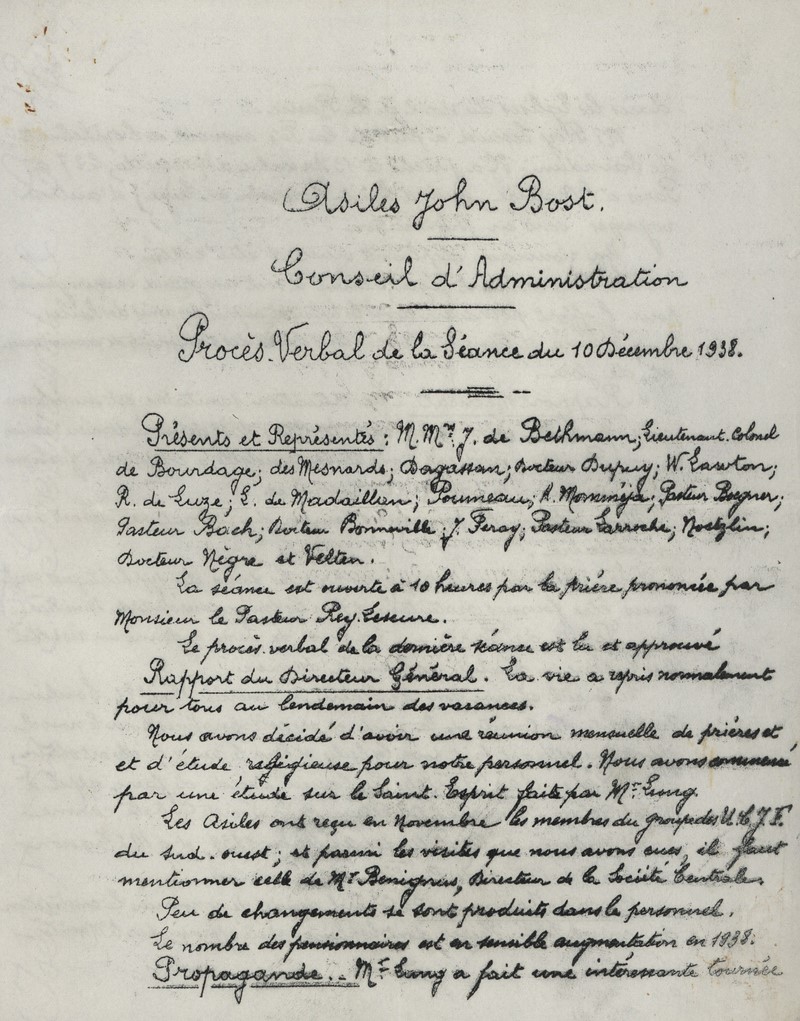 Asiles John Bost.
Conseil d'Administration
Procès-Verbal de la Séance du 10 Décembre 1938.
Présents et Représentés : M.Mrs J. de Bethmann; Lieutenant-Colonel
de Bourdage; des Mesnards; Dagassan; Docteur Dupuy; W. Lawton;
R. de Luze; E. de Madaillan; Poumeau; A. Momméja; Pasteur Boegner;
Pasteur Bach; Docteur Bonneville; J. Feray; Pasteur Larroche; Noetzlin;
Docteur Nègre et Velten.
La séance est ouverte à 10 heures par la prière prononcée par
Monsieur le Pasteur Rey-Lescure.
Le procès-verbal de la dernière séance est lu et approuvé
Rapport du Directeur Général. La vie a repris normalement
pour tous au lendemain des vacances.
Nous avons décidé d'avoir une réunion mensuelle de prières et
et d'étude religieuse pour notre personnel. Nous avons commencé
par une étude sur le Saint-Esprit faite par Mr Lung.
Les Asiles ont reçu en Novembre les membres du groupe des U.C.J.F.
du Sud-ouest; et parmi les visites que nous avons eues, il faut
mentionner celle de Mr Benignus, Directeur de la Société Centrale.
Peu de changements se sont produits dans le personnel.
Le nombre des pensionnaires est en sensible augmentation en 1938.
Propagande.. Mr Lung a fait une intéressante tournée